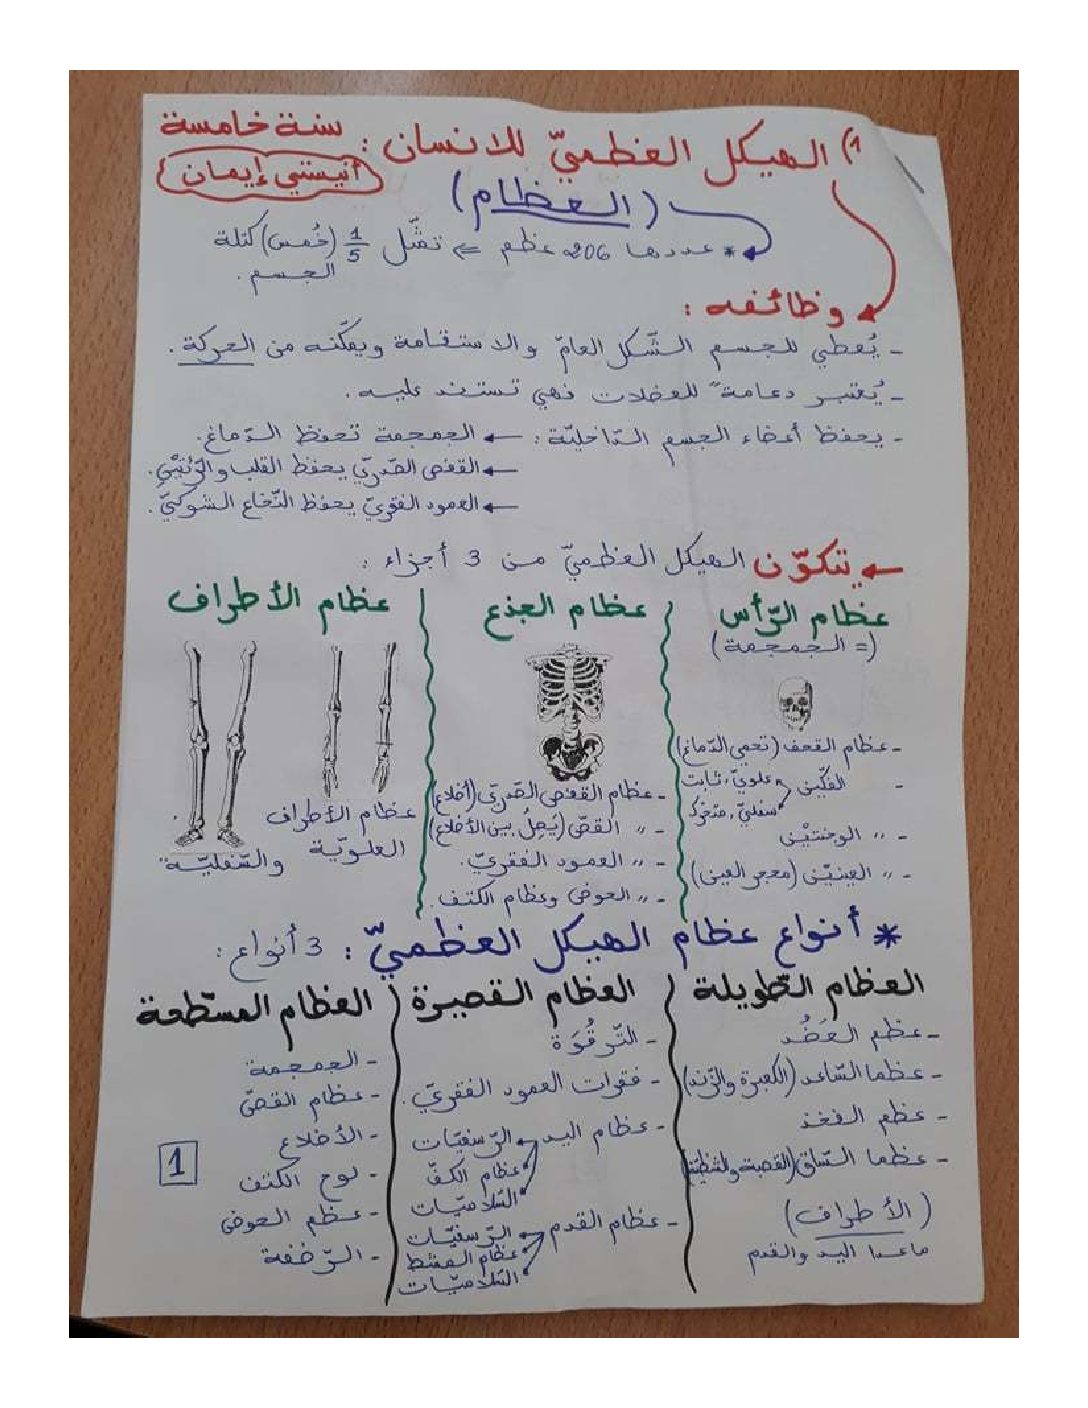 سنة خامسة
1) الهيكل العظميّ للانسان :
أنيستي إيمان
(العظام)
* عددها 206 عظم ⇐ تمثّل 1/5 (خُمس) كتلة
الجسم .
وظائفه :
- يُعطي للجسم الشّكل العامّ والاستقامة ويمكّنه من الحركة .
- يُعتبر دعامة للعضلات فهي تستند عليه .
- يحفظ أعضاء الجسم الدّاخليّة : ← الجمجمة تحفظ الدّماغ .
← القفص الصّدريّ يحفظ القلب والرّئتيْن .
← العمود الفقريّ يحفظ النّخاع الشوكيّ .
← تتكوّن الهيكل العظميّ من 3 أجزاء :
عظام الرّأس
(= الجمجمة)
- عظام القحف (تحمي الدّماغ)
- الفكّين علويّ، ثابت
سفليّ، متحرّك
- " الوجنتيْن
- " العينيْن (محجر العين)
عظام الجذع
- عظام القفص الصّدريّ (أضلاع)
- " القصّ (يَصِلُ بين الأضلاع)
- " العمود الفقريّ .
- " الحوض وعظام الكتف .
عظام الأطراف
عظام الأطراف
العلويّة
والسّفليّة
* أنواع عظام الهيكل العظميّ : 3 أنواع :
العظام الطّويلة
- عظم العَضُد
- عظما السّاعد (الكعبرة والزّند)
- عظم الفخذ
- عظما السّاق (القصبة والشظيّة)
(الأطراف)
ماعدا اليد والقدم
العظام القصيرة
- التّرقُوَة
- فقرات العمود الفقريّ .
- عظام اليد الرّسغيّات
عظام الكفّ
السّلاميّات
- عظام القدم الرّسغيّات
عظام المشط
السّلاميّات
العظام المسطّحة
- الجمجمة
- عظام القصّ
- الأضلاع
- لوح الكتف
- عظم الحوض
- الرّضفة
1